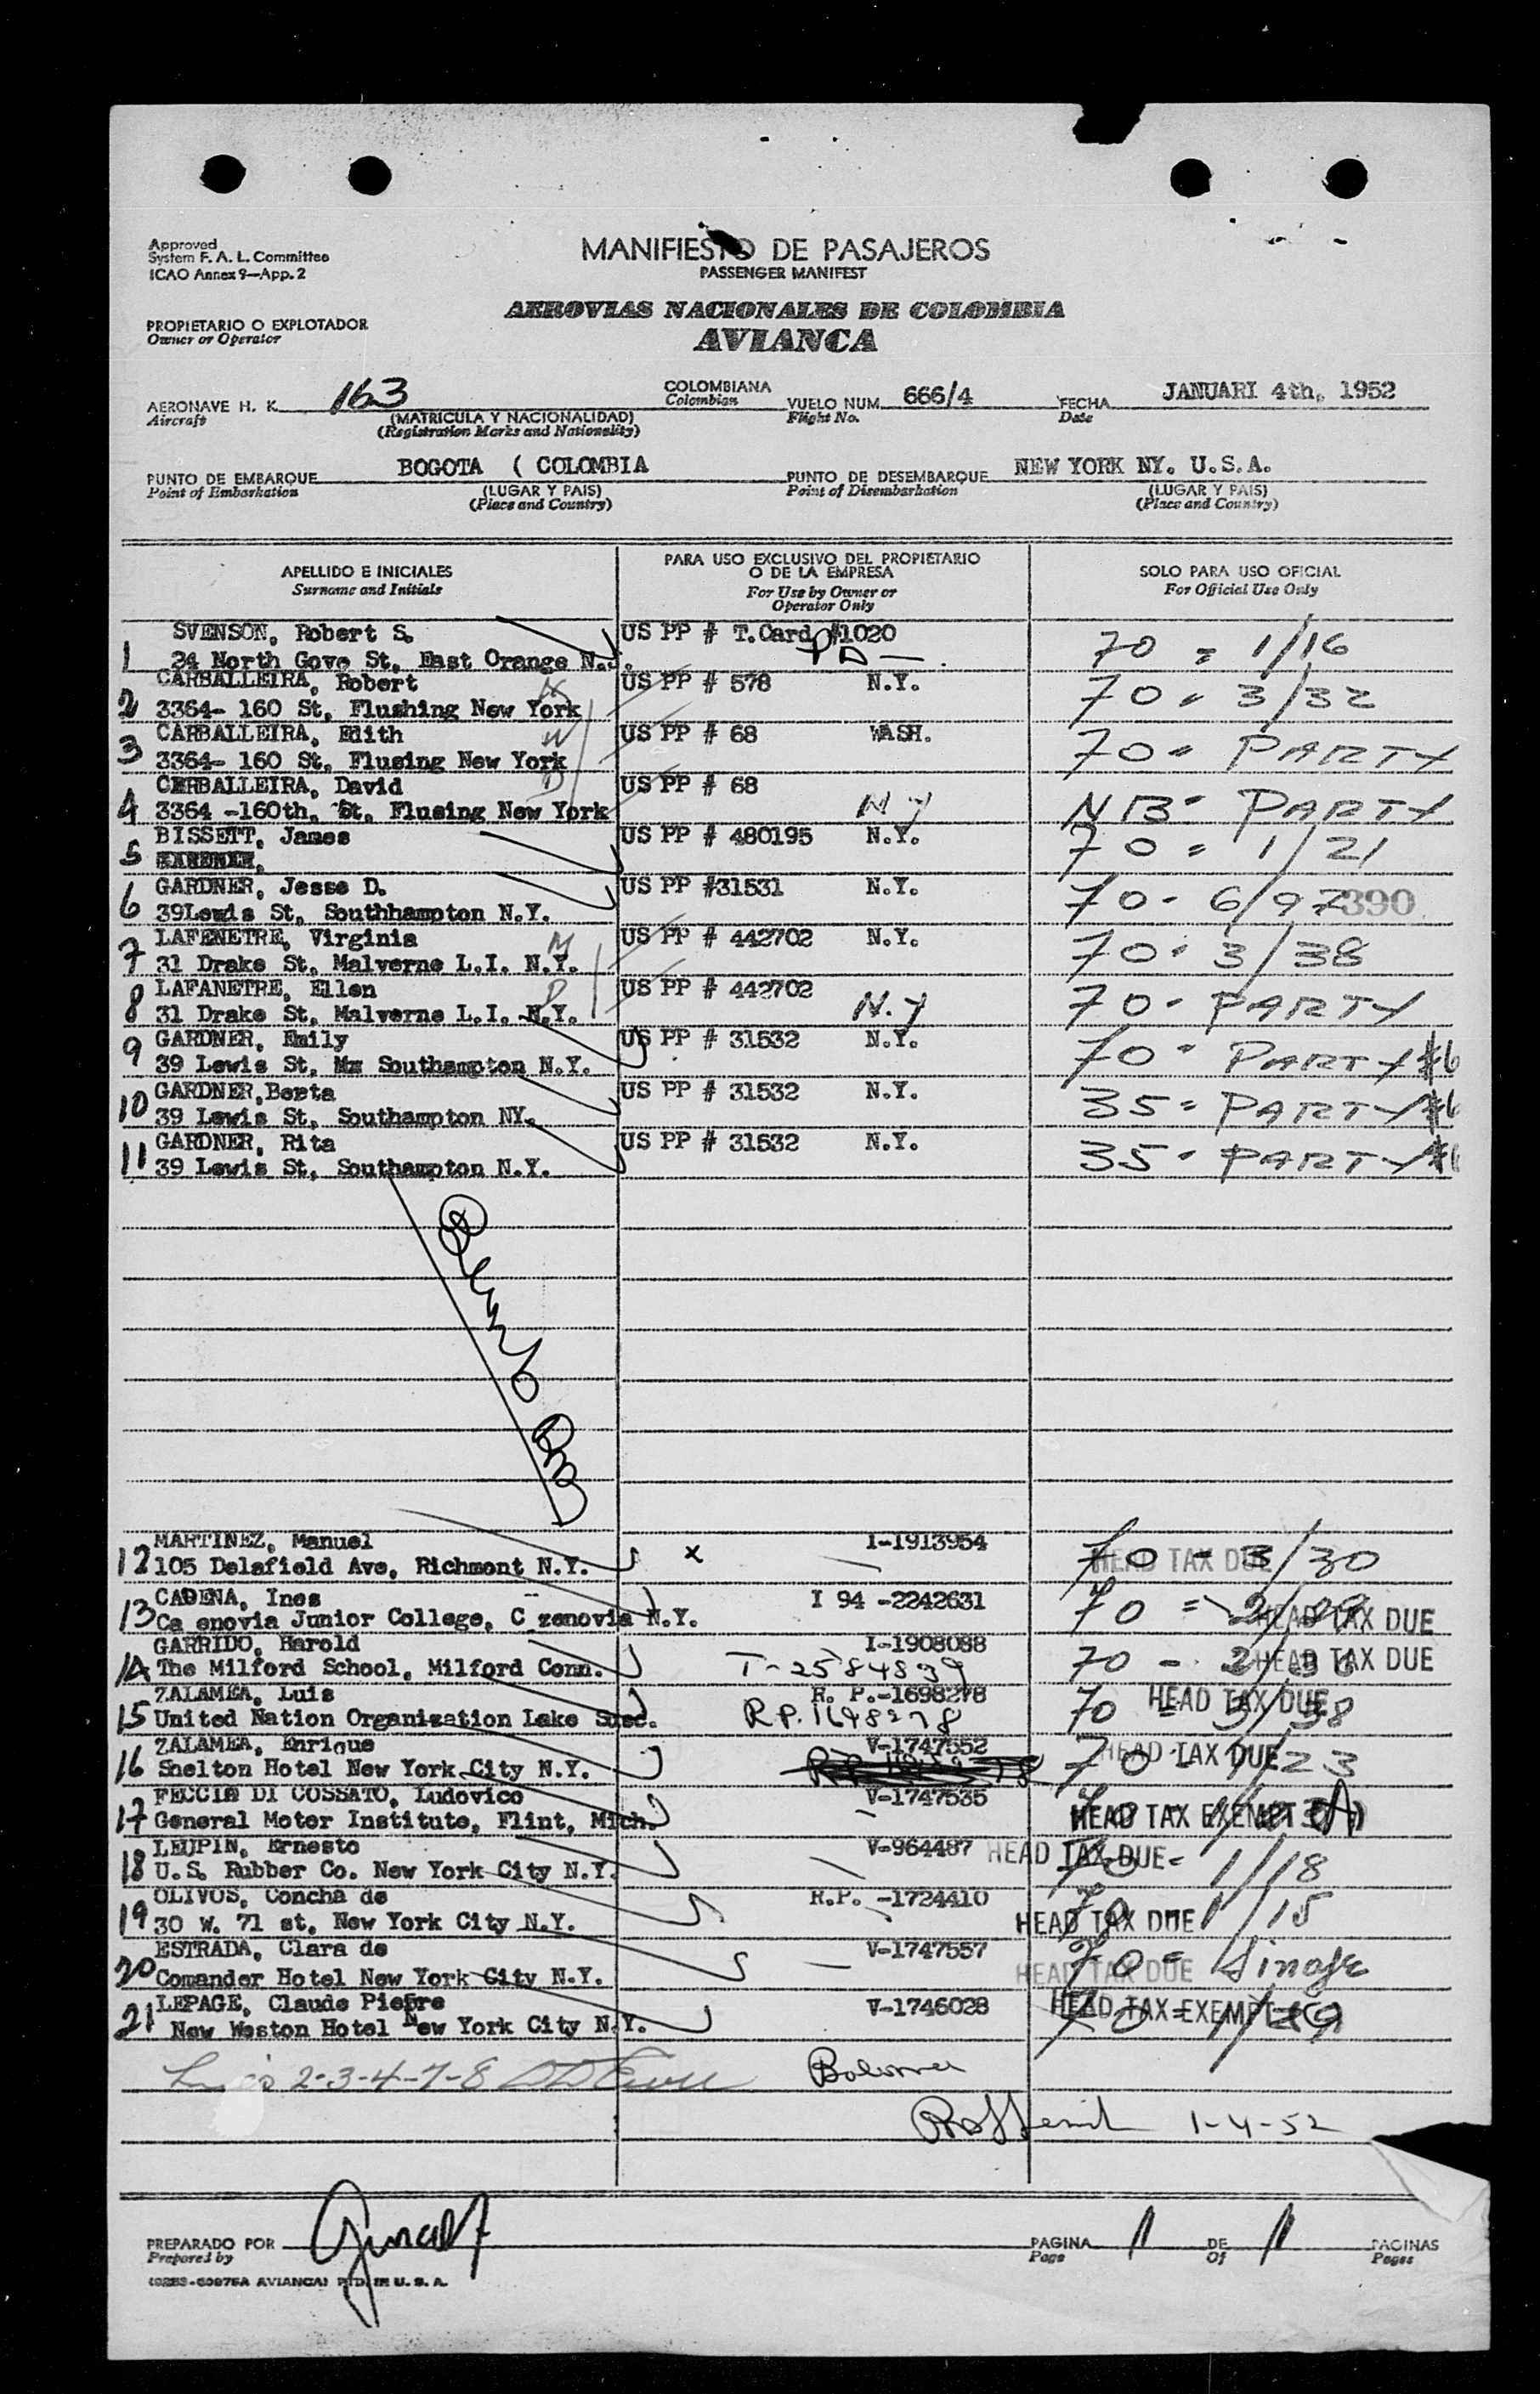 Approved
System F. A. L. Committee
ICAO Annex 9—App. 2
MANIFIESTO DE PASAJEROS
PASSENGER MANIFEST
AEROVIAS NACIONALES DE COLOMBIA
AVIANCA
PROPIETARIO O EXPLOTADOR
Owner or Operator
AERONAVE H. K. 163 COLOMBIANA VUELO NUM. 666/4 FECHA JANUARI 4th, 1952
Aircraft (MATRICULA Y NACIONALIDAD) Colombian Flight No. Date
(Registration Marks and Nationality)
PUNTO DE EMBARQUE BOGOTA ( COLOMBIA PUNTO DE DESEMBARQUE NEW YORK NY. U.S.A.
Point of Embarkation (LUGAR Y PAIS) Point of Disembarkation (LUGAR Y PAIS)
(Place and Country) (Place and Country)
APELLIDO E INICIALES PARA USO EXCLUSIVO DEL PROPIETARIO O DE LA EMPRESA SOLO PARA USO OFICIAL
Surname and Initials For Use by Owner or Operator Only For Official Use Only
SVENSON, Robert S. US PP # T.Card #1020
1 24 North Gove St, East Orange N.J. 70 = 1/16
CARBALLEIRA, Robert US PP # 578 N.Y.
2 3364- 160 St, Flushing New York 70 - 3/32
CARBALLEIRA, Edith US PP # 68 WASH.
3 3364- 160 St, Flusing New York 70 - PARTY
CERBALLEIRA, David US PP # 68
4 3364 -160th, St, Flusing New York N Y NB - PARTY
BISSETT, James US PP # 480195 N.Y.
5 70 = 1/21
GARDNER, Jesse D. US PP #31531 N.Y.
6 39Lewis St, Southhampton N.Y. 70 - 6/97 390
LAFENETRE, Virginia M US PP # 442702 N.Y.
7 31 Drake St, Malverne L.I. N.Y. 70 - 3/38
LAFANETRE, Ellen D US PP # 442702
8 31 Drake St, Malverne L.I. N.Y. N.Y 70 - PARTY
GARDNER, Emily US PP # 31532 N.Y.
9 39 Lewis St, Mx Southampton N.Y. 70 - PARTY #6
GARDNER,Berta US PP # 31532 N.Y.
10 39 Lewis St, Southampton NY. 35 = PARTY #6
GARDNER, Rita US PP # 31532 N.Y.
11 39 Lewis St, Southampton N.Y. 35 - PARTY #6
MARTINEZ, Manuel x I-1913954
12 105 Delafield Ave, Richmont N.Y. 70 - 3/30 HEAD TAX DUE
CADENA, Ines I 94 -2242631
13 Ca enovia Junior College, C zenovia N.Y. 70 = HEAD TAX DUE
GARRIDO, Harold I-1908088
14 The Milford School, Milford Conn. T-2584839 70 - HEAD TAX DUE
ZALAMEA, Luis R. P.-1698278
15 United Nation Organization Lake Succ. R P. 1698278 70 HEAD TAX DUE
ZALAMEA, Enrique V-1747552
16 Shelton Hotel New York City N.Y. 70 HEAD TAX DUE 23
FECCIA DI COSSATO, Ludovico V-1747535
17 General Motor Institute, Flint, Mich. HEAD TAX EXEMPT (A)
LEUPIN, Ernesto V-964487
18 U.S. Rubber Co. New York City N.Y. HEAD TAX DUE 70 - 1/18
OLIVOS, Concha de R.P. -1724410
19 30 W. 71 st, New York City N.Y. HEAD TAX DUE 70 1/15
ESTRADA, Clara de V-1747557
20 Comander Hotel New York City N.Y. HEAD TAX DUE 70 =
LEPAGE, Claude Pierre V-1746028
21 New Weston Hotel New York City N.Y. HEAD TAX EXEMPT
2-3-4-7-8
1-4-52
PREPARADO POR PAGINA 1 DE 1 PAGINAS
Prepared by Page Of Pages
(0283-60076A AVIANCA) PTD. IN U. S. A.